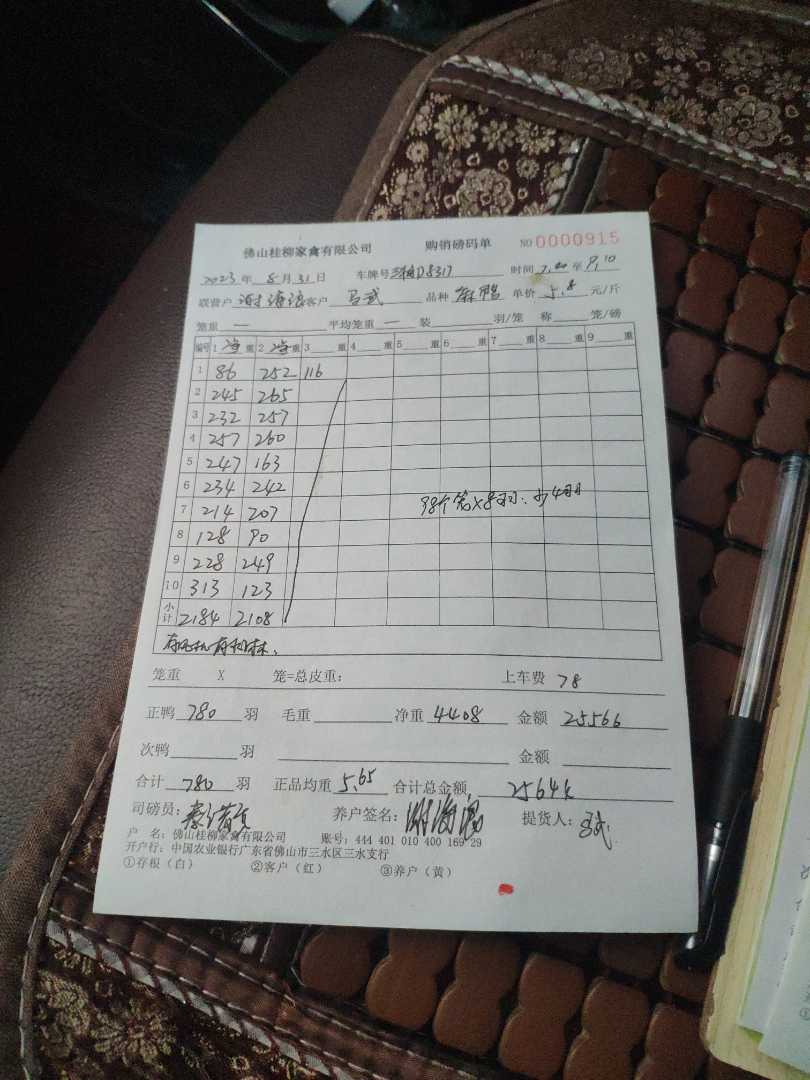 佛山桂柳家禽有限公司 购销磅码单 NO 0000915
2023年 8月31日 车牌号 D8317 时间 7.00 至 9.10
联营户 谢海浪 客户 马武 品种 麻鸭 单价 5.8 元/斤
笼重 一 平均笼重 一 装 羽/笼 称 笼/磅
编号 1 净重 2 净重 3 重 4 重 5 重 6 重 7 重 8 重 9 重
1 86 252 116
2 245 265
3 232 257
4 257 260
5 247 163
6 234 242
7 214 207
98个笼×8羽: 少4羽
8 128 90
9 228 249
10 313 123
小计 2184 2108
笼重 X 笼=总皮重: 上车费 78
正鸭 780 羽 毛重 净重 4408 金额 25566
次鸭 羽 金额
合计 780 羽 正品均重 5.65 合计总金额 25644
司磅员: 养户签名: 谢海浪 提货人: 马武
户 名: 佛山桂柳家禽有限公司 账号: 444 401 010 400 169 29
开户行: 中国农业银行广东省佛山市三水区三水支行
①存根(白) ②客户(红) ③养户(黄)